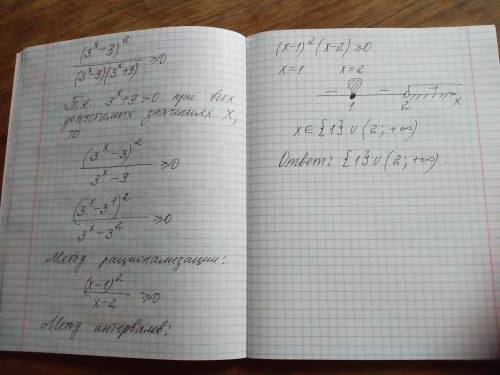 (3ˣ-3)²
(3ˣ-9)(3ˣ+9) ≥0
Т.к. 3ˣ+9>0 при всех
допустимых значениях X,
то
(3ˣ-3)²
3ˣ-9 ≥0
(3ˣ-3¹)²
3ˣ-3² ≥0
Метод рационализации:
(x-1)²
x-2 ≥0
Метод интервалов:
(x-1)²(x-2)≥0
x=1 x=2
— — +
1 2 x
x∈{1}∪(2;+∞)
Ответ: {1}∪(2;+∞).